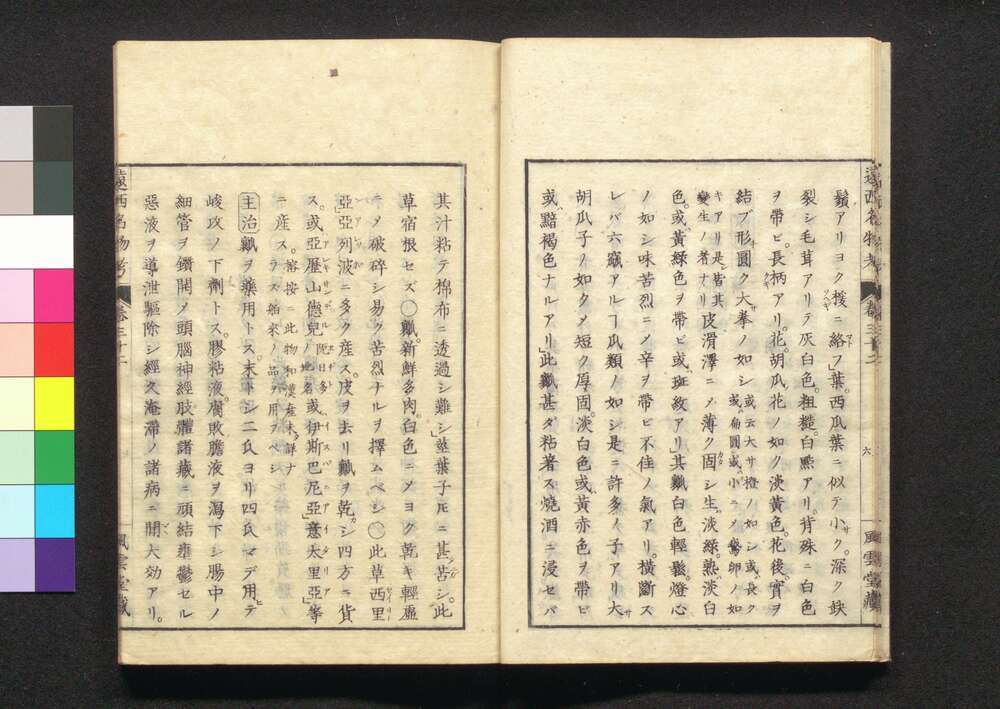 鬚アリヨク援ニ絡フ」葉。西瓜葉ニ似テ小ク。深ク缺
裂シ毛茸アリテ灰白色。粗糙。白點アリ。背殊ニ白色
ヲ帶ビ。長柄アリ。花。胡瓜花ノ如ク淡黄色。花後。實ヲ
結ブ形圓ク大拳ノ如シ或云大サ橙ノ如シ或ハ長ク
或ハ楕圓或ハ小ニメ鷄卵ノ如
キアリ是皆其
變生ノ者ナリ皮滑澤ニメ薄ク固シ生ハ淡綠。熟ハ淡白
色。或ハ黄綠色ヲ帶ビ或ハ斑紋アリ」其瓤白色輕鬆。燈心
ノ如シ味苦烈ニメ辛ヲ帶ビ不佳ノ氣アリ。橫斷ス
レバ六竅アルヿ瓜類ノ如シ是ニ許多ノ子アリ大サ
胡瓜子ノ如クメ短ク厚固。淡白色或ハ黄赤色ヲ帶ビ
或ハ黯褐色ナルアリ」此瓤甚ダ粘著ス燒酒ニ浸セバ
遠西名物考 卷三十二 六 風雲堂藏
其汁粘テ棉布ニ透過シ難シ」莖葉子凡ニ甚苦シ。此
草宿根セズ〇瓤。新鮮多肉。白色ニメヨク乾キ輕虛
ニメ破碎シ易ク苦烈ナルヲ擇ムベシ〇此草西里
亞亞列波ニ多ク産ス。皮ヲ去リ瓤ヲ乾シ四方ニ貨
ス。或ハ亞歷山德兒ノ地名或ハ伊斯巴尼亞」意太里亞」等
ニ産ス。溶按ニ此物和漢産未ダ詳ナ
ラズ舶來ノ品ヲ用フベシ
主治 瓤ヲ藥用トス。末トシ二氏ヨリ四氏マデ用ヒテ
峻攻ノ下劑トス。膠粘液。腐敗膽液ヲ瀉下シ腸中ノ
細管ヲ鑽開メ頭腦神經肢軆諸藏ニ頑結壅鬱セル
惡液ヲ導泄驅除シ經久淹滯ノ諸病ニ開大効アリ。
遠西名物考 卷三十二 風雲堂藏